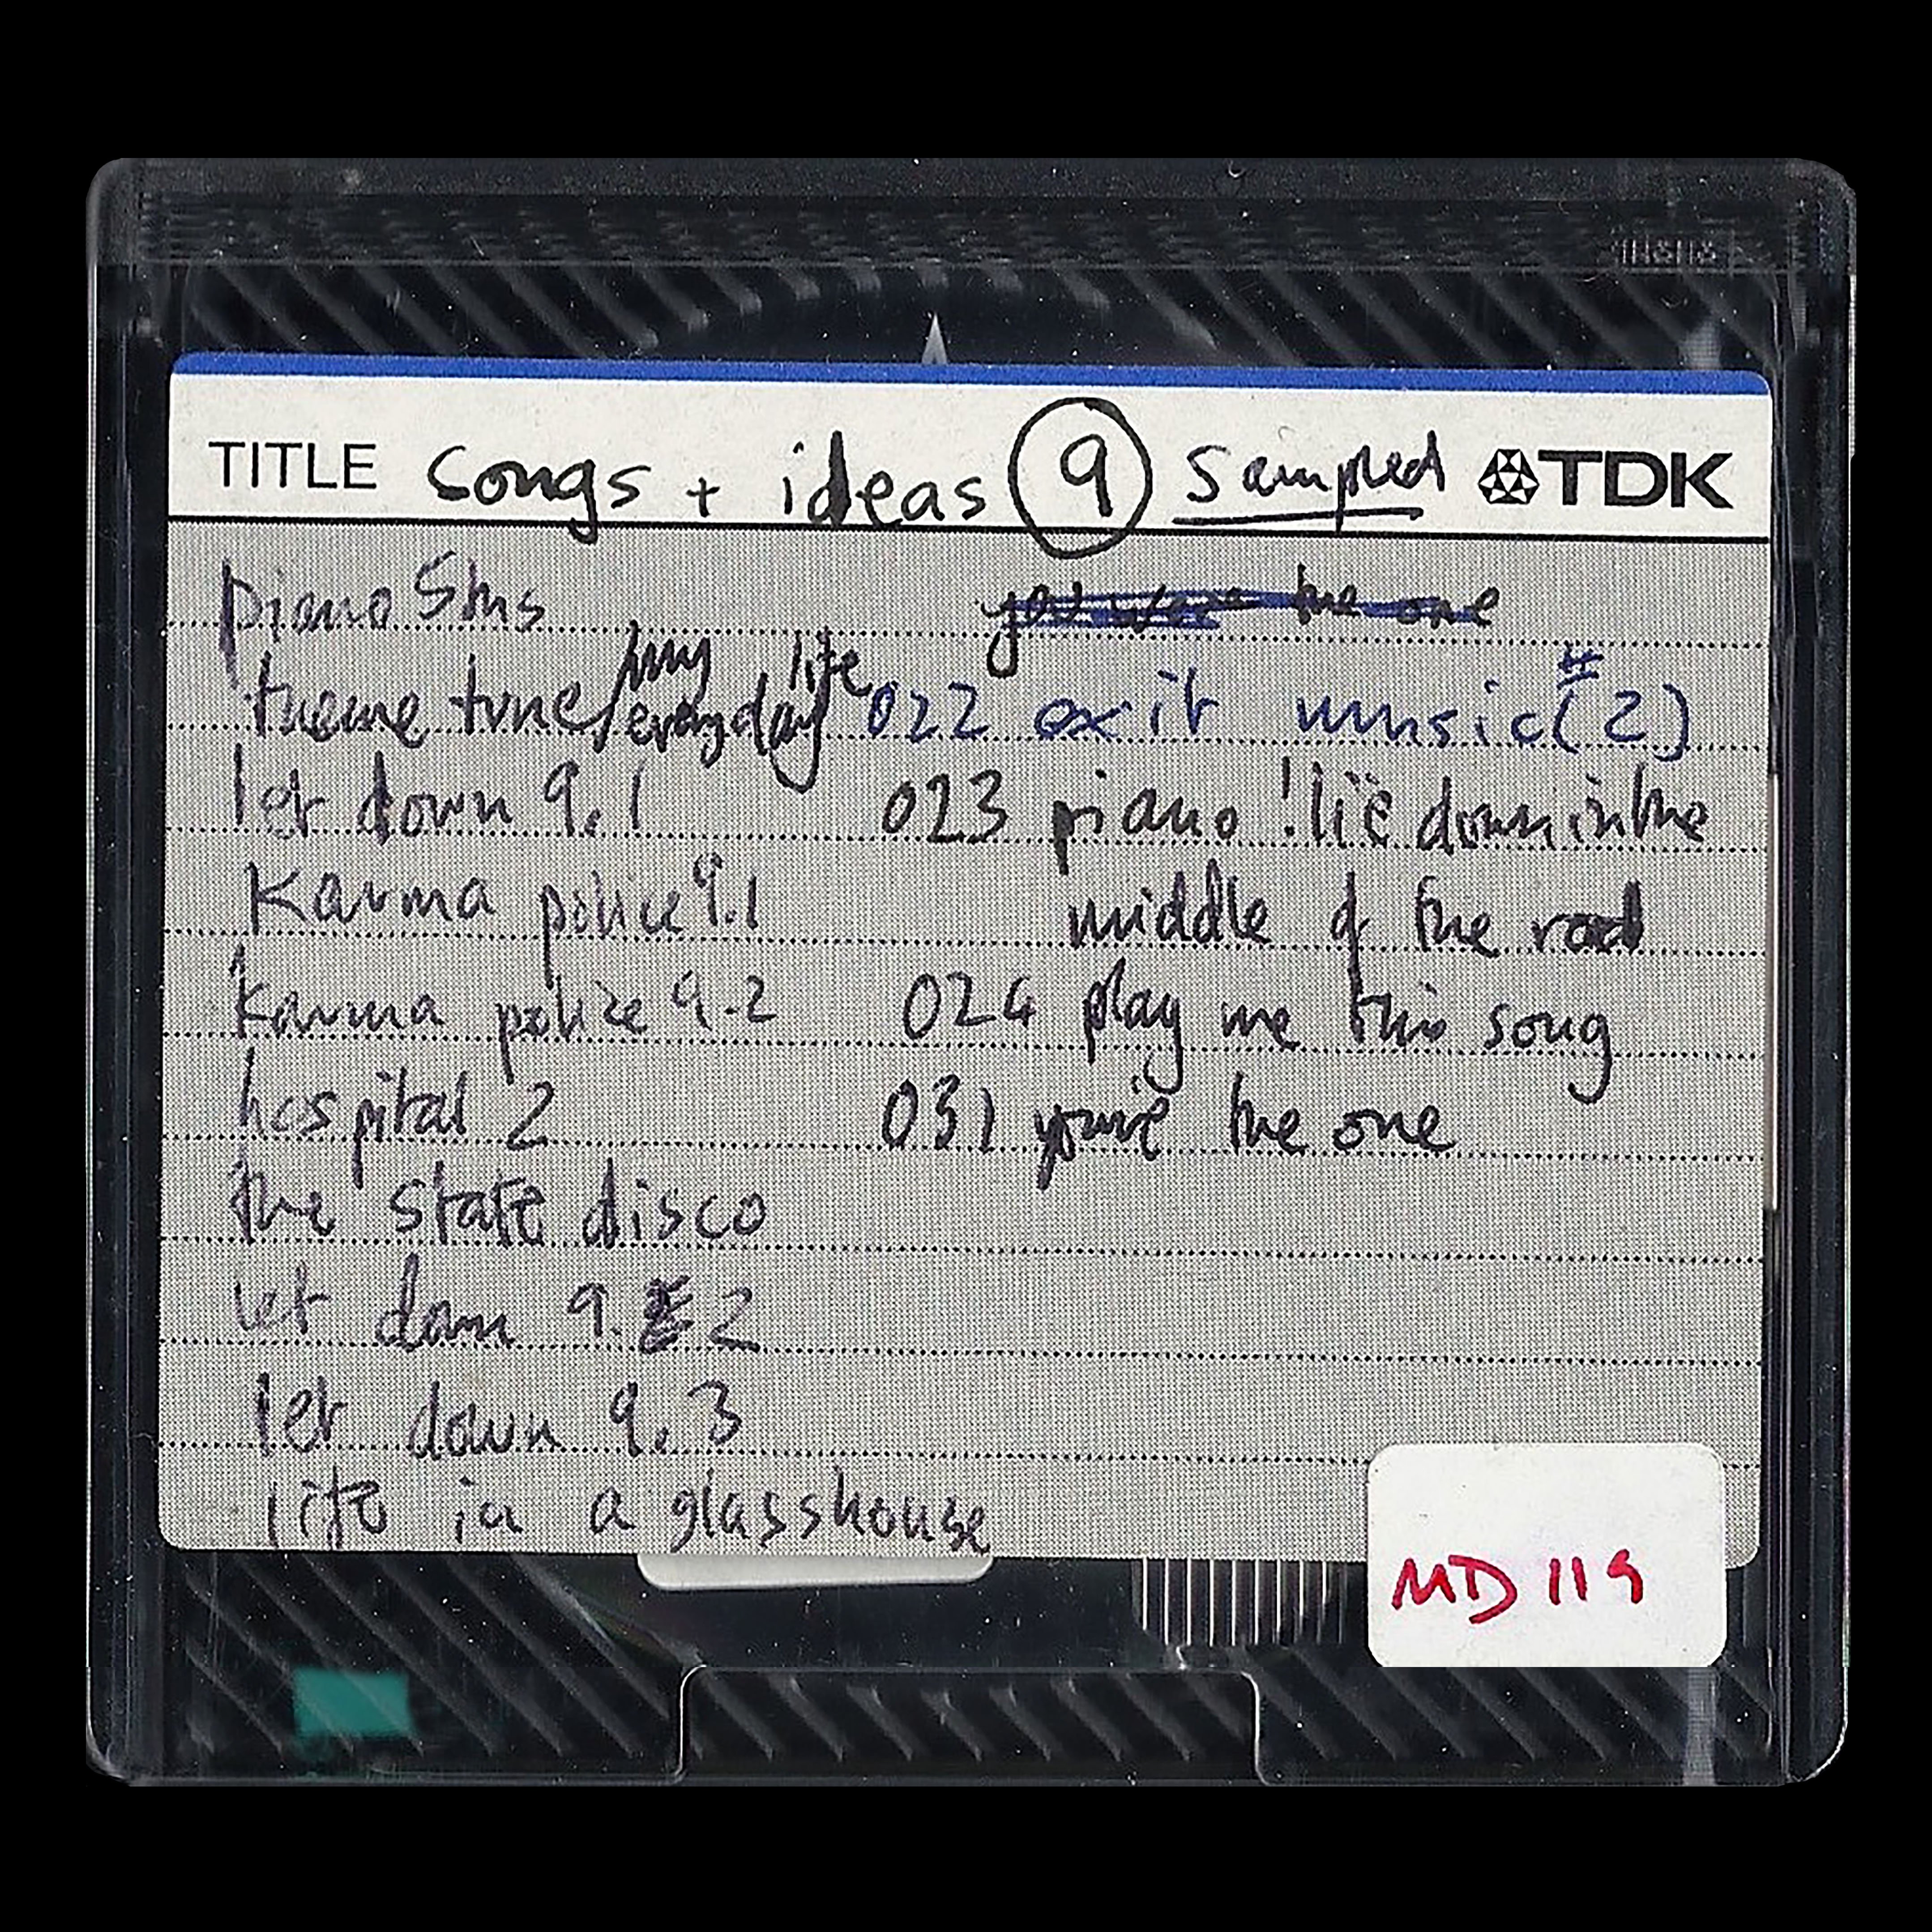 TITLE songs + ideas 9 sampled TDK
piano 5ths
theme tune/my everyday life
let down 9.1
Karma police 9.1
karma police 9.2
hospital 2
the state disco
let down 9.2
let down 9.3
life in a glasshouse
you were the one
022 exit music #(2)
023 piano ! lie down in the
middle of the road
024 play me this song
031 you're the one
MD 119